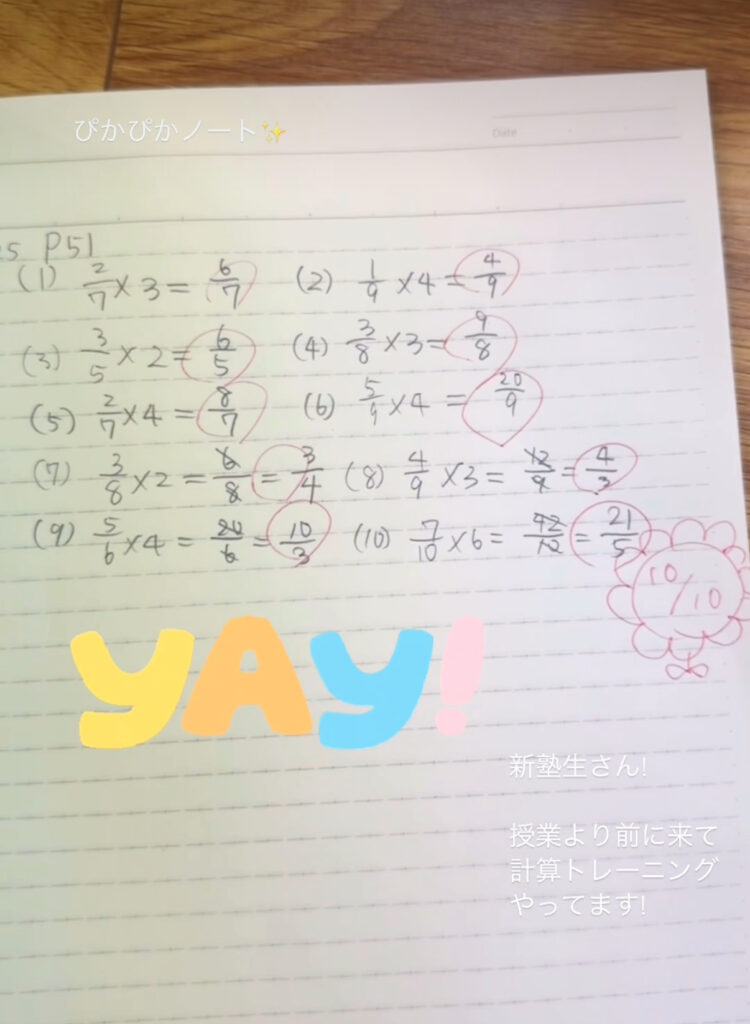 ぴかぴかノート✨
Date
5 P51
(1) 2/7 × 3 = 6/7 (2) 1/9 × 4 = 4/9
(3) 3/5 × 2 = 6/5 (4) 3/8 × 3 = 9/8
(5) 2/7 × 4 = 8/7 (6) 5/9 × 4 = 20/9
(7) 3/8 × 2 = 6/8 = 3/4 (8) 4/9 × 3 = 12/9 = 4/3
(9) 5/6 × 4 = 20/6 = 10/3 (10) 7/10 × 6 = 42/10 = 21/5
10/10
YAY!
新塾生さん!
授業より前に来て
計算トレーニング
やってます!